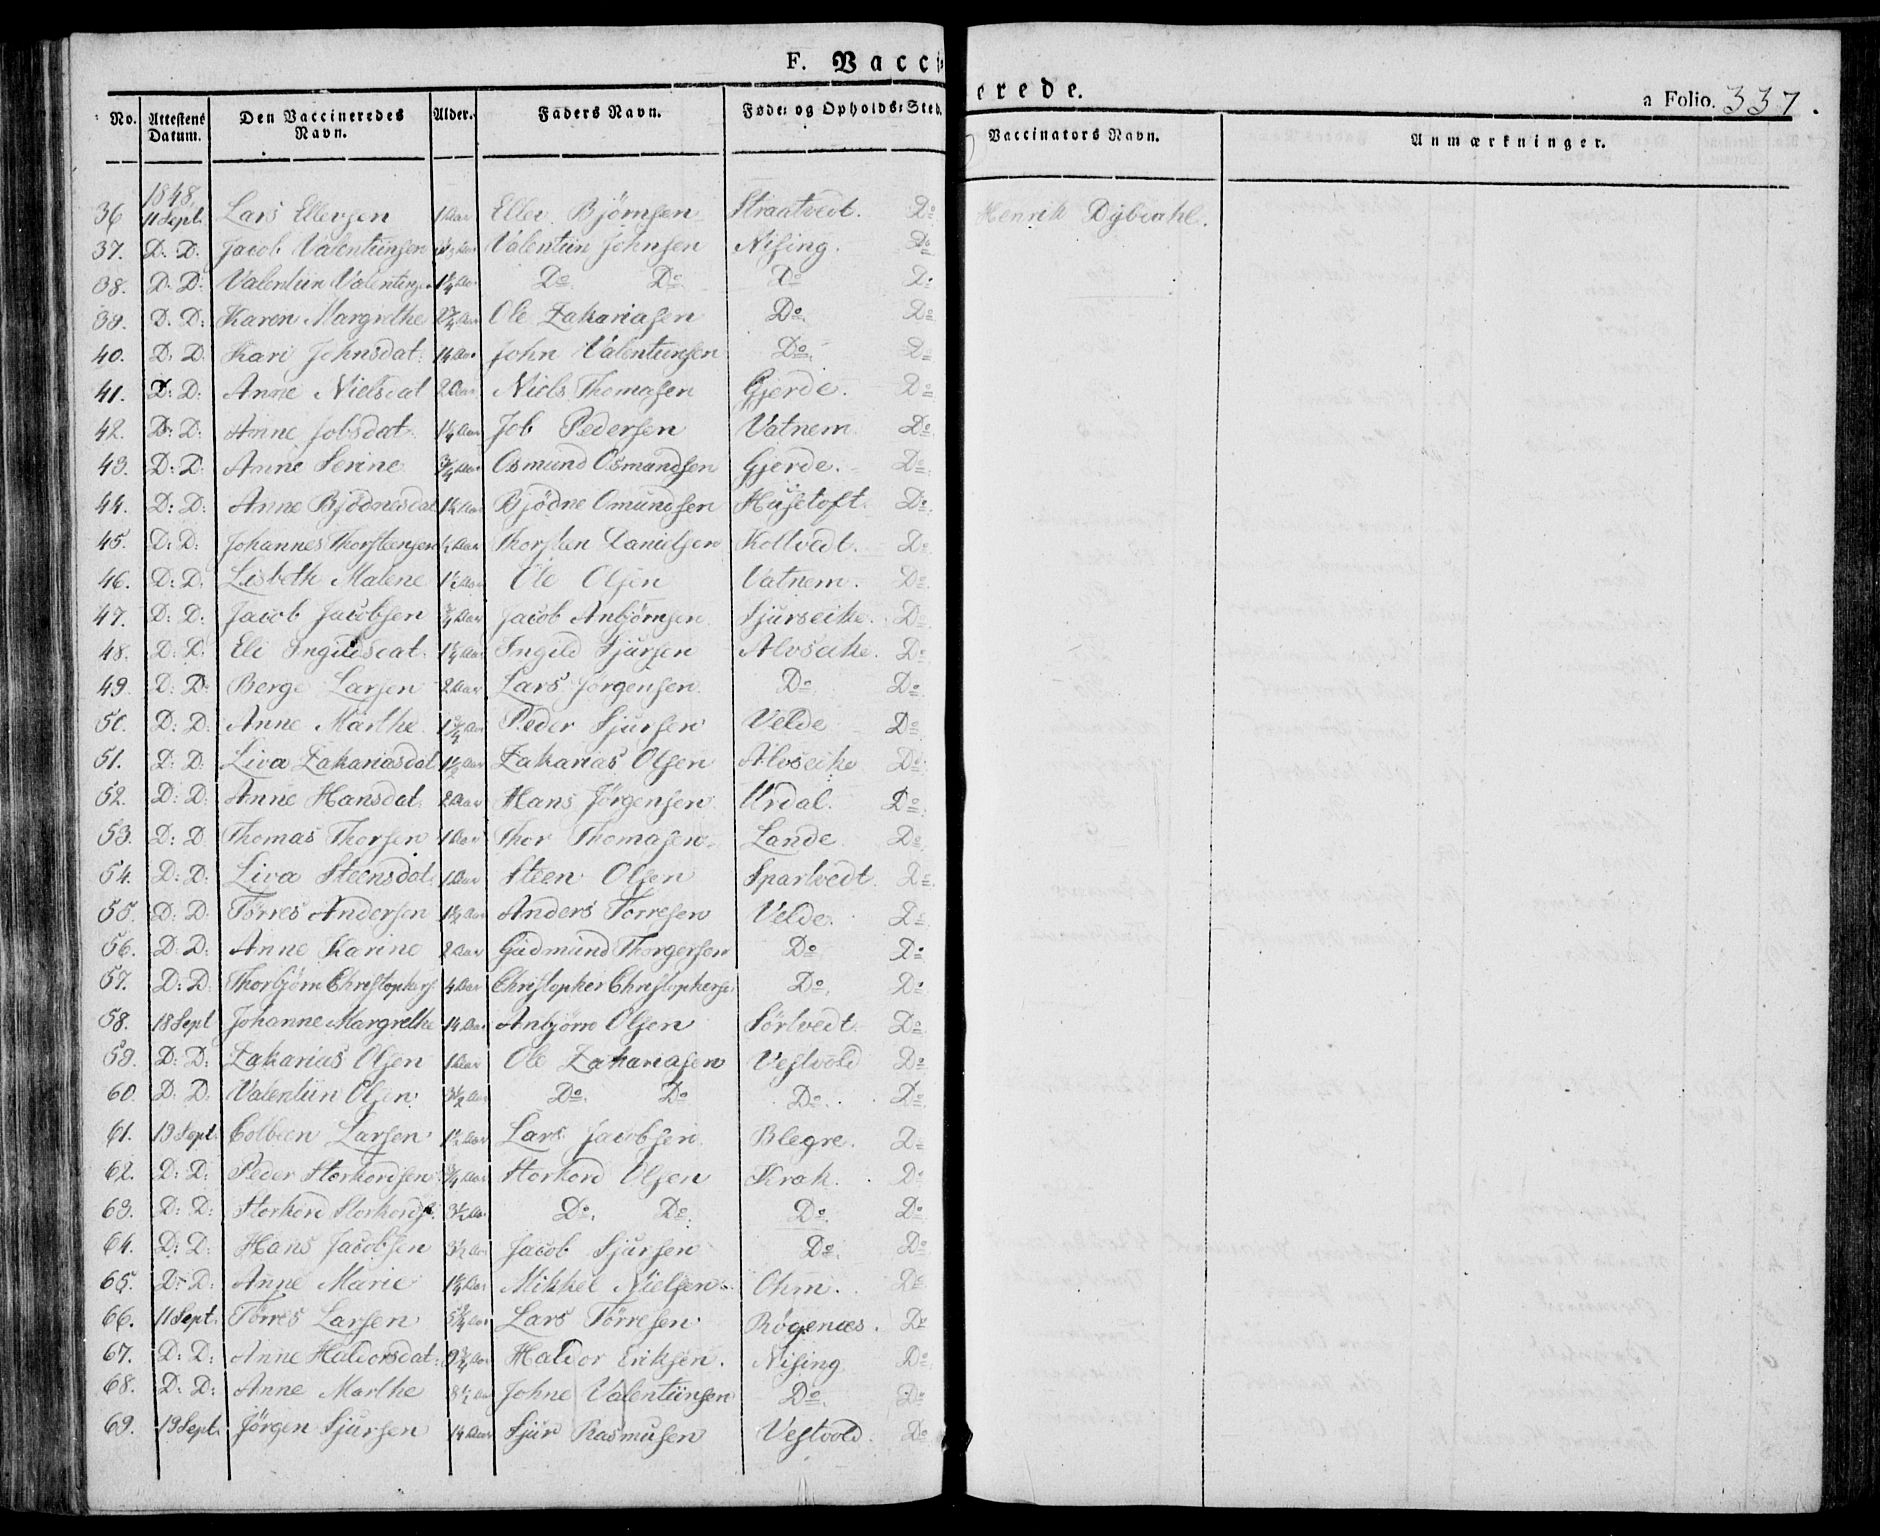 F. Vacci
erede.
a Folio. 337.
No. Attestens Datum. Den Vaccineredes Navn. Alder. Faders Navn. Føde: og Opholds: Sted. Vaccinators Navn. Anmærkninger.
1848
36 11 Sept. Lars Ellersen 1 Aar Eller Bjørnsen Straatvedt. Do Henrik Dybdahl.
37. D. D. Jacob Valentiinsen Valentiin Johnsen Nising. Do
38. D. D: Valentiin Valentinse 1¼ Aar Do Do Do Do
39. D. D: Karen Margrethe 2¾ Aar Ole Zakariasen Do Do
40. D. D. Kari Johnsdat: John Valentiinsen Do Do
41. D: D: Anne Nielsdat 2 Aar Niels Thomasen Gjerde. Do
42. D: D: Anne Jobsdat. 1¼ Aar Job Pedersen Vatnem Do
43. D: D: Anne Serine ¾ Aar Osmund Osmundsen Gjerde. Do
44. D: D: Anne Bjødnesdat Bjødne Omundsen Husetoft. Do
45. D: D: Johannes Thorsteensen ½ Aar Thorsten Danielsen Koltvedt. Do
46. D: D. Lisbeth Malene 1½ Aar Ole Olsen Vatnem. Do
47. D: D: Jacob Jacobsen Jacob Anbjørnsen Sjurseike. Do
48. D: D. Eli Ingildsdat. Ingild Sjursen Alvseike. Do
49. D: D: Berge Larsen 2 Aar Lars Jørgensen Do Do
50. D: D: Anne Marthe 1¾ Aar Peder Sjursen Velde Do
51. D: D: Liva Zakariasdat 1½ Aar Zakarias Olsen Alvseike Do
52. D: D: Anne Hansdat. 2 Aar Hans Jørgensen Urdal. Do
53. D: D Thomas Thorsen 1 Aar Thor Thomasen. Lande. Do
54. D: D: Liva Steensdat. 1 Aar Steen Olsen Spartvedt. Do
55. D: D: Tørres Andersen 1½ Aar Anders Torresen Velde. Do
56. D: D: Anne Karine 2 Aar Gudmund Thorgersen Do Do
57. D: D. Thorbjørn Christophers 4 Aar Christopher Christopherse Do. Do
58. 18 Sept Johanne Margrethe Anbjørn Olsen Sørtvedt. Do
59. D: D: Zakarias Olsen 1 Aar Ole Zakariasen Vestvold Do
60. D: D. Valentiin Olsen 3½ Aar Do Do Do. Do
61. 19 Sept. Colbeen Larsen 1½ Aar Lars Jacobsen Blegre. Do
62. D: D: Peder Storkordsen ¾ Aar Storkord Olsen Krak. Do
63. D: D: Storkord Storkords. 3½ Aar Do. Do. Do Do
64. D: D: Hans Jacobsen 3½ Aar Jacob Sjursen Do. Do
65. D: D: Anne Marie Mikkel Nielsen Ohm. Do
66. 11 Sept. Tørres Larsen 5¾ Aar Lars Tørresen Røgenæs. Do
67. D: D: Anne Haldorsdat. Haldor Eriksen. Nising Do
68. D: D: Anne Marthe 8½ Aar Johne Valentiinsen Do. Do
69. 19 Sept. Jørgen Sjursen Sjur Rasmusen Vestvold Do